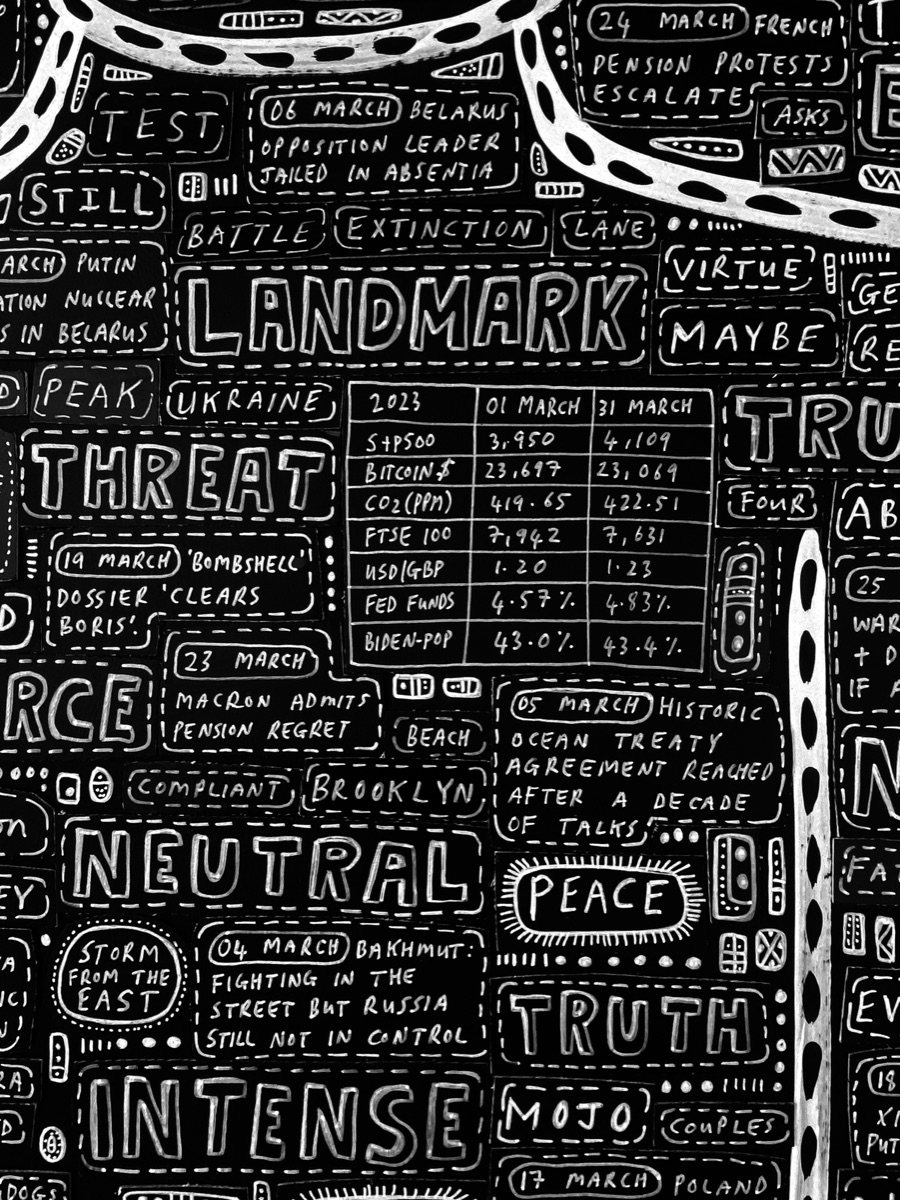 24 MARCH FRENCH
PENSION PROTESTS
ESCALATE
ASKS
TEST
06 MARCH BELARUS
OPPOSITION LEADER
JAILED IN ABSENTIA
STILL
BATTLE
EXTINCTION
LANE
ARCH PUTIN
ATION NUCLEAR
S IN BELARUS
LANDMARK
VIRTUE
MAYBE
GE
RE
PEAK
UKRAINE
THREAT
2023 01 MARCH 31 MARCH
S+P500 3,950 4,109
BITCOIN$ 23,697 23,069
CO2(PPM) 419.65 422.51
FTSE 100 7,942 7,631
USD/GBP 1.20 1.23
FED FUNDS 4.57% 4.83%
BIDEN-POP 43.0% 43.4%
TRU
FOUR
AB
19 MARCH 'BOMBSHELL'
DOSSIER 'CLEARS
BORIS'.
25
WAR
+ D
IF A
23 MARCH
MACRON ADMITS
PENSION REGRET
RCE
BEACH
05 MARCH HISTORIC
OCEAN TREATY
AGREEMENT REACHED
AFTER A DECADE
OF TALKS
COMPLIANT
BROOKLYN
ON
NEUTRAL
EY
PEACE
N
FA
STORM
FROM THE
EAST
04 MARCH BAKHMUT:
FIGHTING IN THE
STREET BUT RUSSIA
STILL NOT IN CONTROL
TRUTH
EV
RA
INTENSE
MOJO
COUPLES
18
XI
PUT
DOGS
17 MARCH POLAND